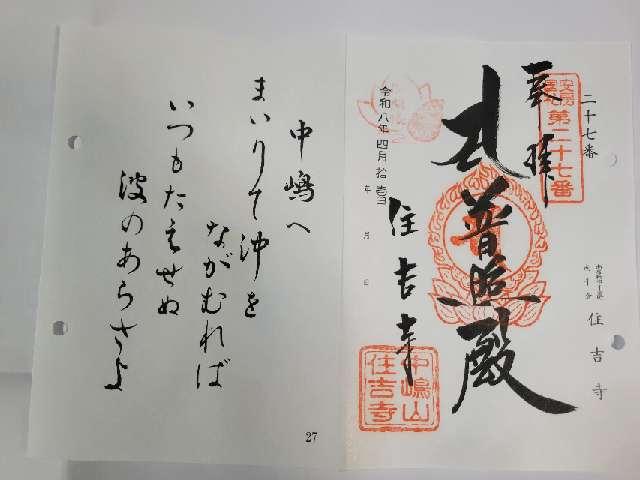 二十七番
住吉寺
奉拝
安房国札
第二十七番
普照殿
住吉寺
中嶋山
住吉寺
令和八年四月拾壱日
年 月 日
中嶋へ
まいりて沖を
ながむれば
いつもたえせぬ
波のあらさよ
27